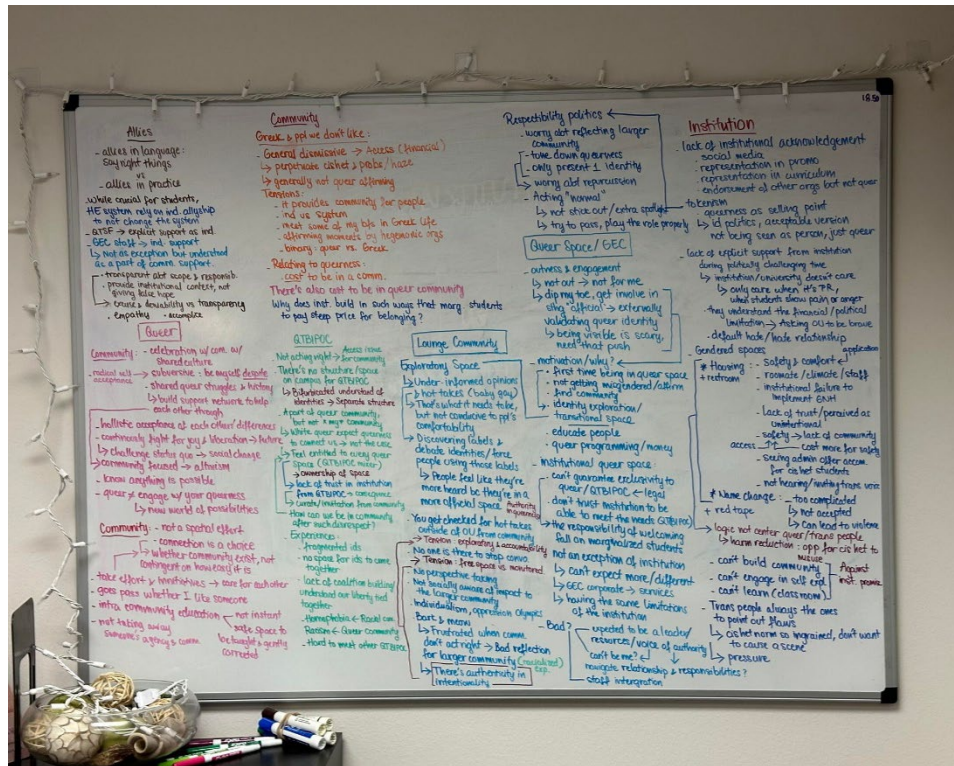 18.50
Allies
- allies in language:
say right things
vs
- allies in practice
- While crucial for students,
HE system rely on ind. allyship
to not change the system
- QTSF → explicit support as ind.
- GEC staff → ind. support
↳ Not as exception but understood
as a part of comm. support.
- transparent abt scope & responsib.
- provide institutional context, not
giving false hope
→ excuse & deniability vs transparency
- empathy - accomplice
Queer
Community: - celebration w/ com. w/
shared culture
- radical self
acceptance
- subversive - be myself despite
- shared queer struggles & history
↳ build support network to help
each other through
- hollistic acceptance of each others' difference
- continously fight for joy & liberation → future
↳ challenge status quo → social change
→ community focused → altruism
- know anything is possible
- queer → engage w/ your queerness
↳ new world of possibilities
Community: - not a spatial effort
- connection is a choice
↳ whether community exist, not
contingent on how easy it is
- take effort & initiatives → care for each other
- goes pass whether I like someone
- intra community education ← not instant
safe space to
be taught & gently
corrected
- not taking away
someone's agency & comm
Community
Greek & ppl we don't like:
- General dismissive → Access (financial)
↳ perpetuate cishet & probs/haze
↳ generally not queer affirming
Tensions:
- it provides community for people
- ind vs system
- meet some of my bfs in Greek Life
- affirming moments by hegemonic orgs
- binary: queer vs. Greek
Relating to queerness:
- cost to be in a comm.
There's also cost to be in queer community
Why does inst. build in such ways that marg. students
to pay steep price for belonging?
QTBIPOC
Not acting right → Access issue
for community
- There's no structure/space
on campus for QTBIPOC
↳ Bifurcated understand of
identities → Separate structure
- Apart of queer community
but not *my* community
↳ White queer expect queerness
to connect us → not the case
↳ Feel entitled to every queer
space (QTBIPOC mixer)
→ ownership of space
↳ lack of trust in institution
from QTBIPOC → consequence
↳ Curate/invitation from community
- How can we be in community
after such disrespect?
- Experience:
- fragmented ids
- no space for ids to come
together
- lack of coalition building/
understand our liberty tied
together
- Homophobia ← Racial com.
Racism ← Queer community
- Hard to meet other QTBIPOC
Lounge Community
Exploratory Space
↳ Under-informed opinions
↳ hot takes (baby gay)
↳ That's what it needs to be,
but not conducive to ppl's
comfortability
↳ Discovering labels &
debate identities/force
people using those labels
↳ People feel like they're
more heard bc they're in a
more official space (Authority
in queerness)
- You get checked for hot takes
outside of OU from community
→ Tension: exploration & accountability
- No one is there to stop convo
→ Tension: free space vs monitored
- No perspective taking
- Not socially aware of impact to
the larger community
- Individualism, oppression olympics
- Bark & meow
↳ frustrated when comm.
don't act right → Bad reflection
for larger community (racialized)
exp.
↳ There's authenticity in
intentionality
Respectibility politics
- worry abt reflecting larger
community
- tone down queerness
- only present 1 identity
↳ worry abt repercussion
- Acting "normal"
↳ not stick out/extra spotlight
↳ try to pass, play the role properly
Queer Space/GEC
- outness & engagement
↳ not out → not for me
↳ dip my toe, get involve in
sthg "official" → externally
validating queer identity
↳ being visible is scary,
need that push
- motivation/why?
- first time being in queer space
- not getting misgendered/affirm
- find community
- identity exploration/
transitional space
- educate people
- queer programming/money
- Institutional queer space:
- can't guarantee exclusivity to
queer/QTBIPOC ← legal
- don't trust institution to be
able to meet the needs (QTBIPOC)
→ the responsibility of welcoming
fall on marginalized students
- not an exception of institution
↳ can't expect more/different
↳ GEC corporate → services
↳ having the same limitations
of the institution
- Bad? - expected to be a leader/
resources/voice of authority
can't be me?
navigate relationship & responsibilities?
- staff intergration
Institution
- lack of institutional acknowledgement
- social media
- representation in promo
- representation in curriculum
- endorsment of other orgs but not queer
- tokenism
- queerness as selling point
↳ id politics, acceptable version
not being seen as person, just queer
- lack of explicit support from institution
during politically challenging time
↳ institution/university doesn't care
↳ only care when it's PR,
when students show pain or anger
- they understand the financial/political
limitation → Asking OU to be brave
- default hate/hate relationship
- Gendered spaces
application
* Housing: - Safety & comfort
+ restroom
- roomate/climate/staff
- institutional failure to
implement GNH
- Lack of trust/perceived as
unintentional
- safety → lack of community
access
cost more for safety
- seeing admin offer accom.
for cishet students
- not hearing/inviting trans voice
* Name change: - too complicated
+ red tape
- not accepted
- can lead to violence
→ logic not center queer/trans people
↳ harm reduction: opp for cishet to
misuse
- can't build community
- can't engage in self expl.
- can't learn (classroom)
Against
inst. promise
- Trans people always the ones
to point out flaws
↳ cishet norm so ingrained, don't want
to cause a scene
↳ pressure